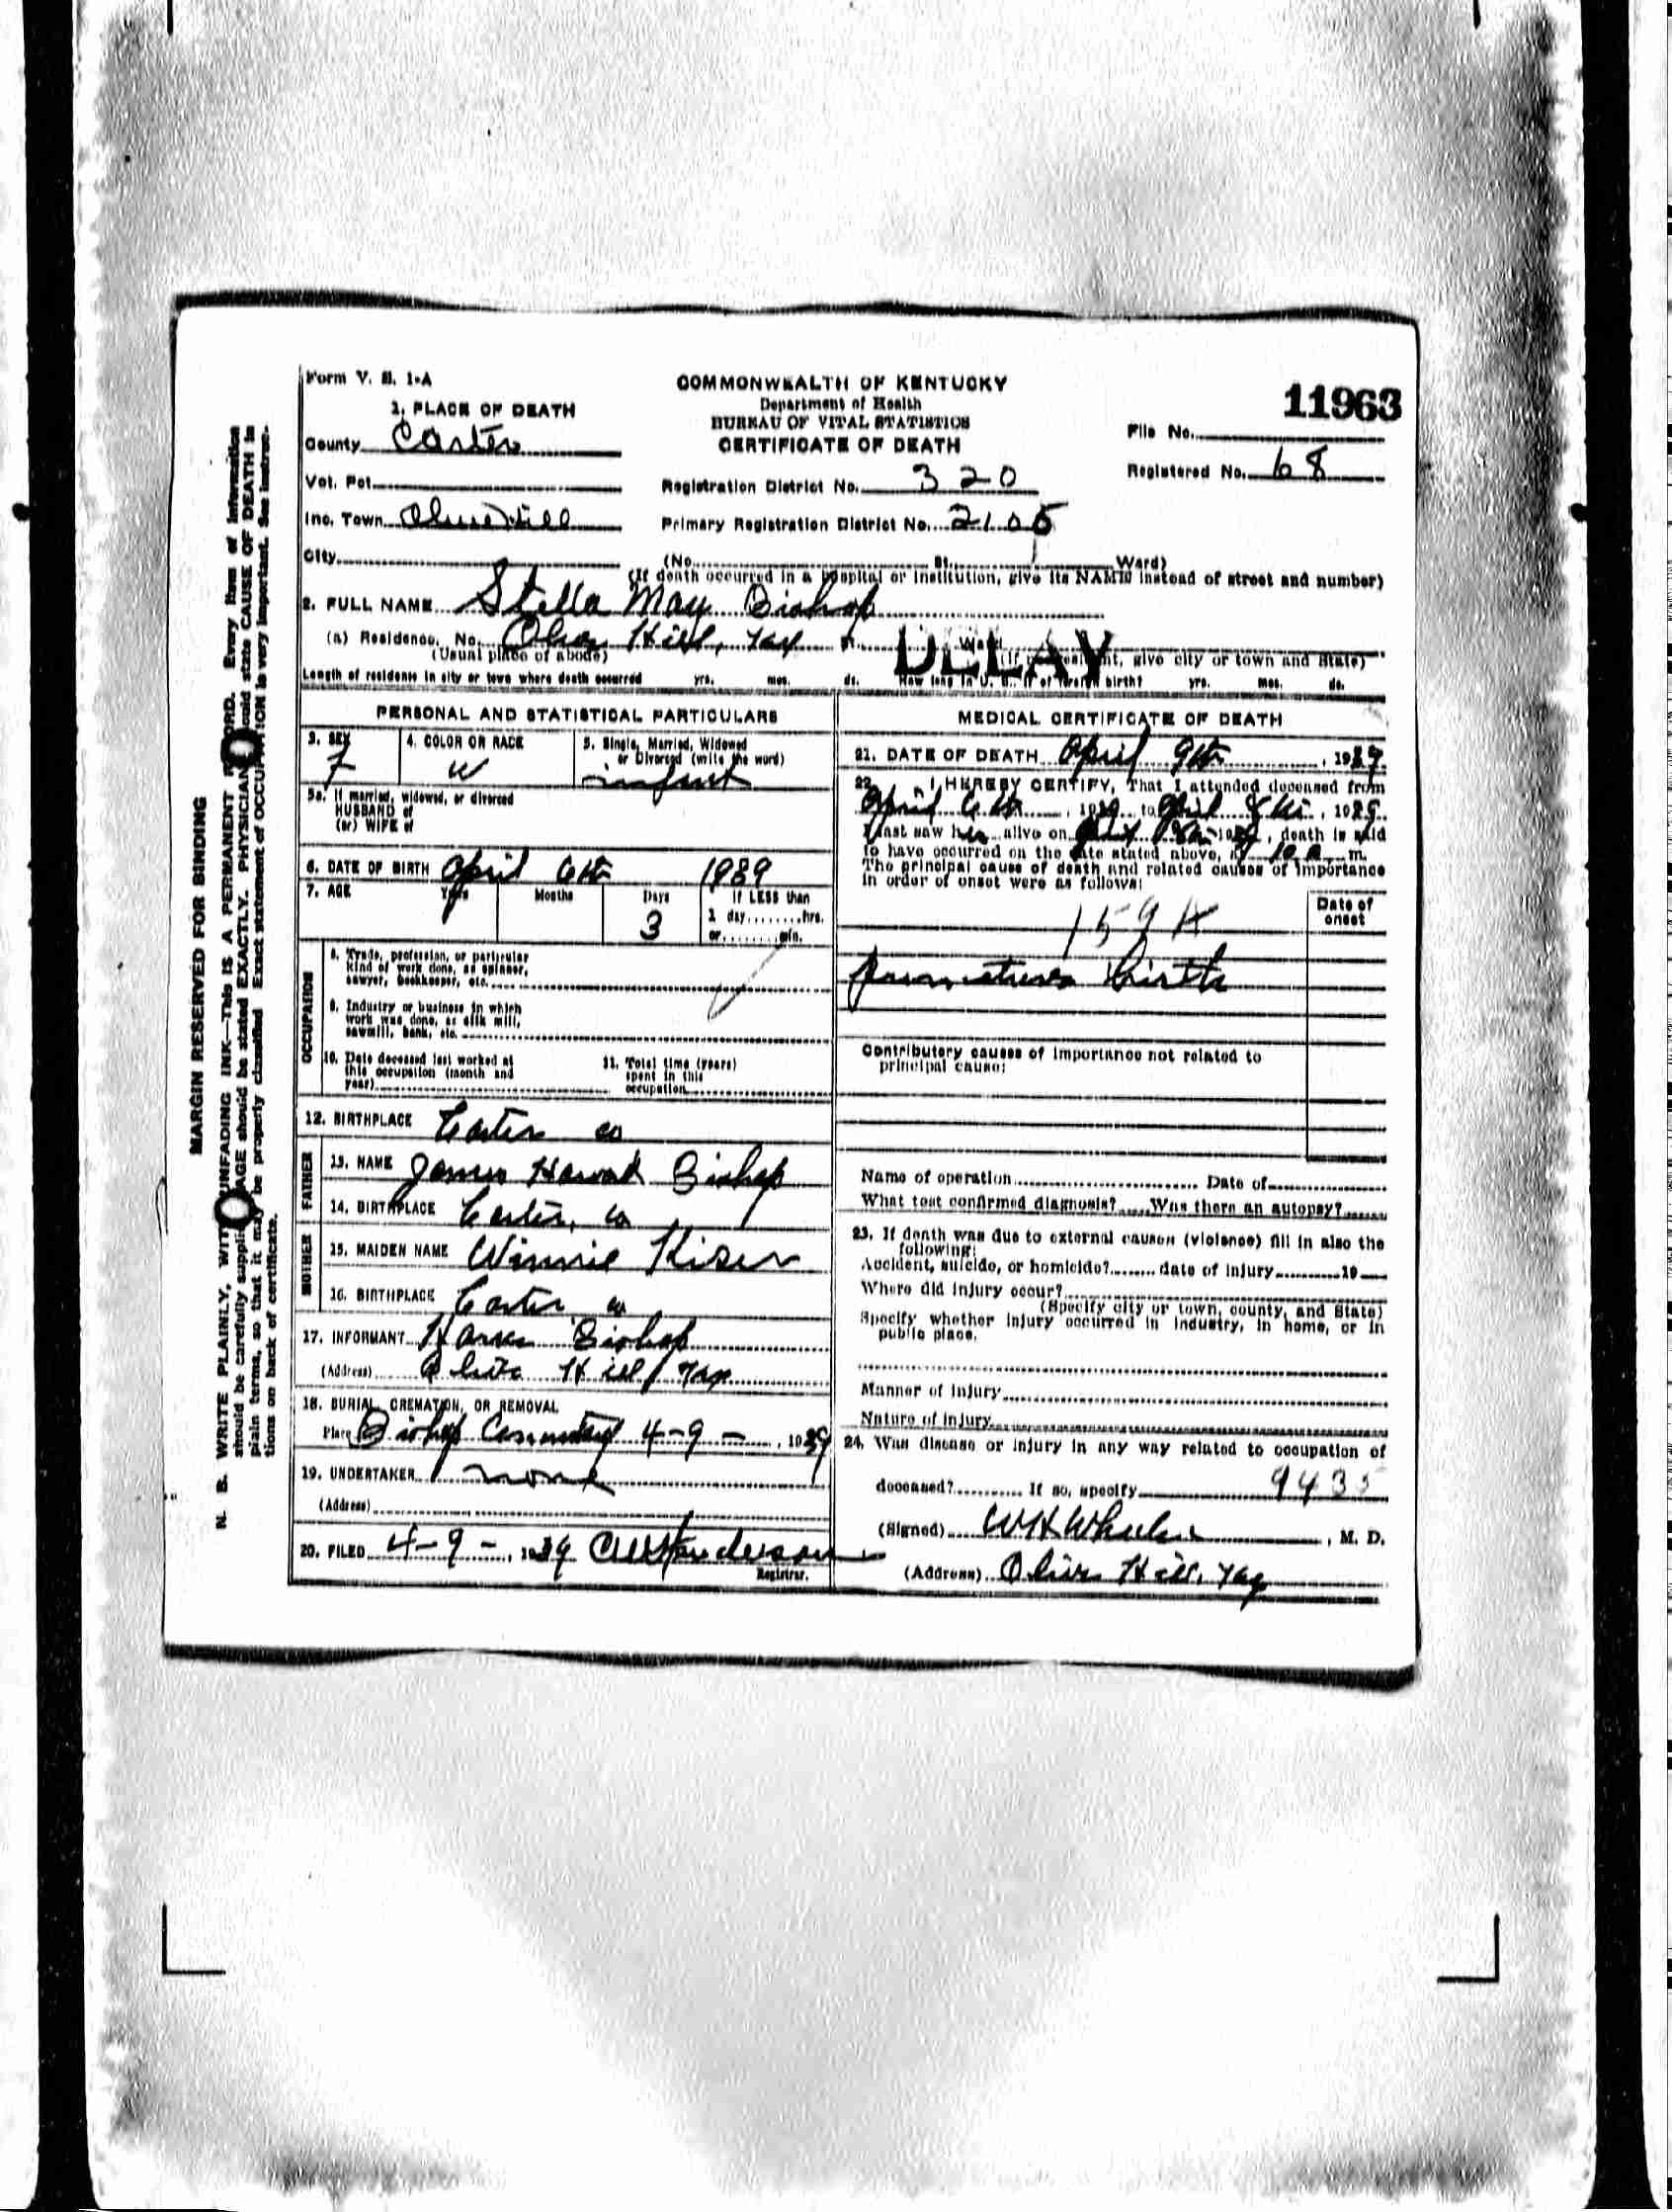 Form V. S. 1-A
COMMONWEALTH OF KENTUCKY
Department of Health
BUREAU OF VITAL STATISTICS
CERTIFICATE OF DEATH
11963
File No.
Registered No. 68
1. PLACE OF DEATH
County Carter
Vot. Pct.
Inc. Town Olive Hill
City
Registration District No. 320
Primary Registration District No. 2105
(No. St. Ward)
(If death occurred in a hospital or institution, give its NAME instead of street and number)
2. FULL NAME Stella May Bishop
(a) Residence. No. Olive Hill, Ky St. Ward
DELAY
(Usual place of abode)
(If nonresident, give city or town and State)
Length of residence in city or town where death occurred yrs. mos. ds. How long in U. S., if of foreign birth? yrs. mos. ds.
PERSONAL AND STATISTICAL PARTICULARS
3. SEX F
4. COLOR OR RACE W
5. Single, Married, Widowed or Divorced (write the word) infant
5a. If married, widowed, or divorced
HUSBAND of
(or) WIFE of
6. DATE OF BIRTH April 6th 1939
7. AGE Years Months Days 3 If LESS than
1 day........hrs.
or........min.
OCCUPATION
8. Trade, profession, or particular
kind of work done, as spinner,
sawyer, bookkeeper, etc.
9. Industry or business in which
work was done, as silk mill,
sawmill, bank, etc.
10. Date deceased last worked at
this occupation (month and
year)
11. Total time (years)
spent in this
occupation
12. BIRTHPLACE Carter co
FATHER
13. NAME James Bishop
14. BIRTHPLACE Carter, co
MOTHER
15. MAIDEN NAME Winnie Kiser
16. BIRTHPLACE Carter co
17. INFORMANT Bishop
(Address) Olive Hill, Ky
18. BURIAL, CREMATION, OR REMOVAL
Place Bishop Cemetery 4-9-, 1939
19. UNDERTAKER none
(Address)
20. FILED 4-9-, 1939 Henderson
Registrar.
MEDICAL CERTIFICATE OF DEATH
21. DATE OF DEATH April 9th, 1939
22. I HEREBY CERTIFY, That I attended deceased from
April 6th, 1939 to April 8th, 1939.
I last saw her alive on April 8th 1939, death is said
to have occurred on the date stated above, at 10 a. m.
The principal cause of death and related causes of importance
in order of onset were as follows:
Date of
onset
159
premature birth
Contributory causes of importance not related to
principal cause:
Name of operation Date of
What test confirmed diagnosis? Was there an autopsy?
23. If death was due to external causes (violence) fill in also the
following:
Accident, suicide, or homicide? date of injury 19
Where did injury occur?
(Specify city or town, county, and State)
Specify whether injury occurred in industry, in home, or in
public place.
Manner of injury
Nature of injury
24. Was disease or injury in any way related to occupation of
deceased? If so, specify 9435
(Signed) Wheeler, M. D.
(Address) Olive Hill, Ky
MARGIN RESERVED FOR BINDING
N. B. WRITE PLAINLY, WITH UNFADING INK—THIS IS A PERMANENT RECORD. Every item of information
should be carefully supplied. AGE should be stated EXACTLY. PHYSICIANS should state CAUSE OF DEATH in
plain terms, so that it may be properly classified. Exact statement of OCCUPATION is very important. See instruc-
tions on back of certificate.